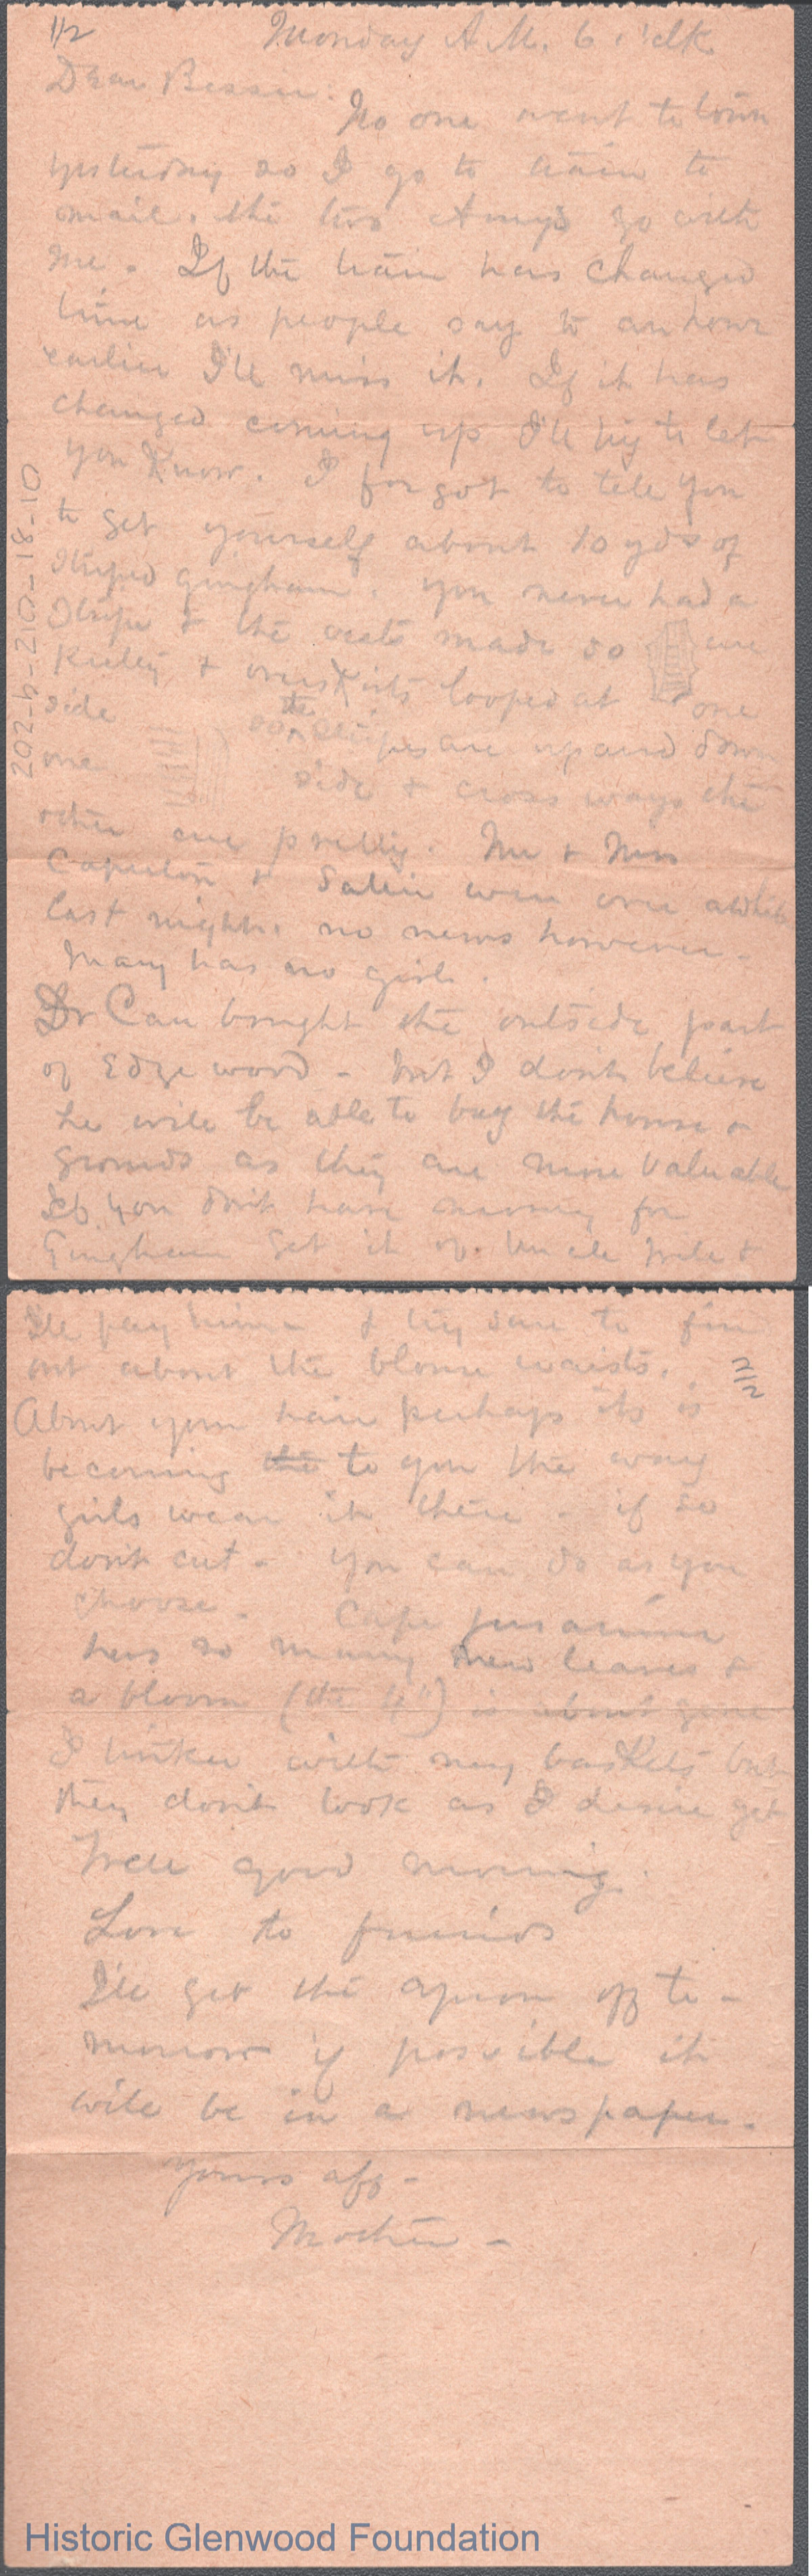 1/2
Monday A.M. 6 o'clk.
Dear Bessie.
No one went to town
yesterday so I go to train to
mail. the two Amys go with
me. If the train has changed
time as people say to an hour
earlier I'll miss it. If it has
changed coming up I'll try to let
you know. I forgot to tell you
to get yourself about 10 yds of
striped gingham. you never had a
stripe & the vests made so are
& overskirts looped at one
side so the stripes are up and down
one side & cross ways the
other are pretty. Mr & Miss
Caperton & Sallie were over awhile
last night. no news however -
Mary has no girl.
Dr Carr bought the outside part
of Edgewood - but I don't believe
he will be able to buy the house &
grounds as they are more valuable
If you don't have money for
Gingham get it of Uncle &
I'll pay him & try sure to find
out about the blouse waists.
2/2
About your hair perhaps its is
becoming the to you the way
girls wear it there - if so
don't cut - you can do as you
choose. Cape jusamine
has so many new leaves &
a bloom (the 4th) is about gone
I tinker with my baskets but
they don't look as I desire yet
Well good morning.
Love to friends
I'll get the apron off to-
morrow if possible it
will be in a newspaper.
Yours aff -
Mother -
202-b-210-18-10
Historic Glenwood Foundation